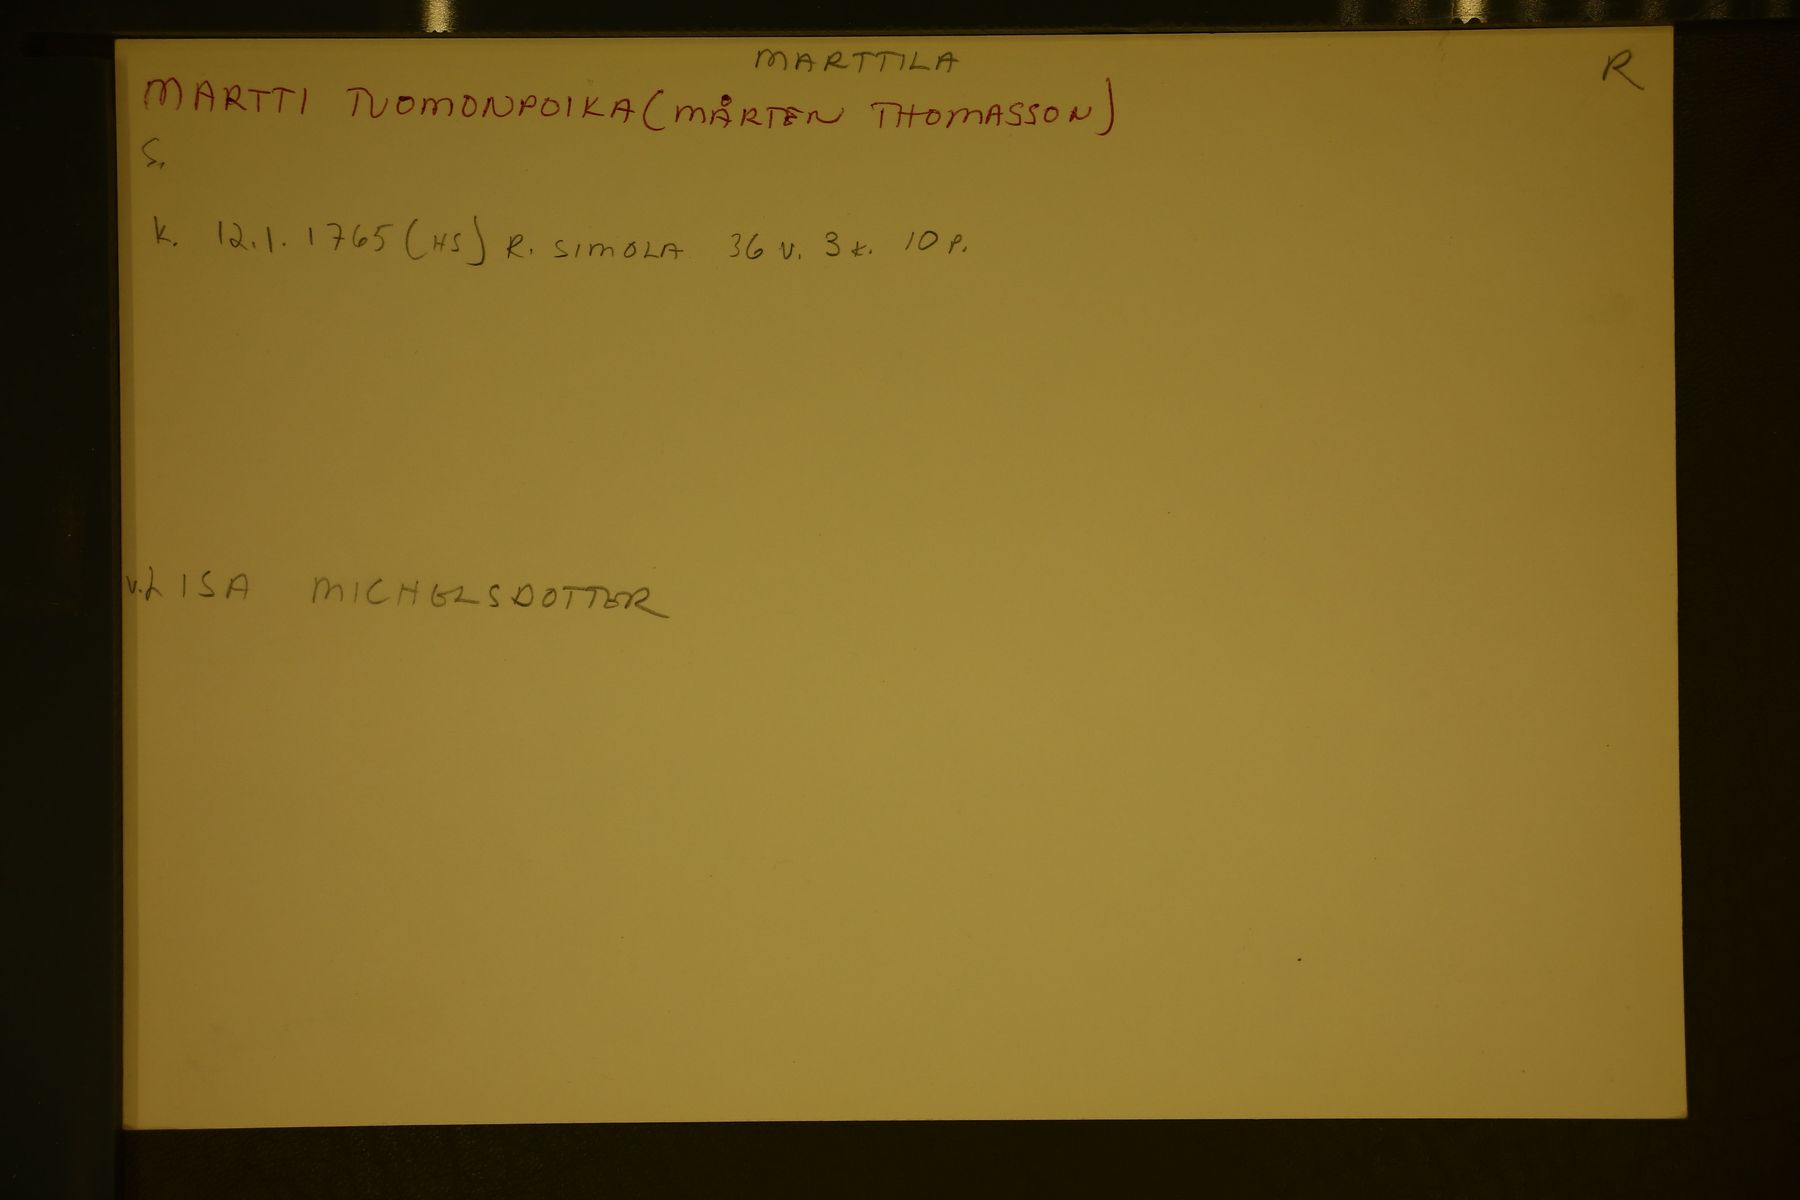 MARTTILA
R
MARTTI TUOMONPOIKA (MÅRTEN THOMASSON)
S.
k. 12.1.1765 (HS) R. SIMOLA 36 v. 3 k. 10 p.
v. LISA MICHELSDOTTER